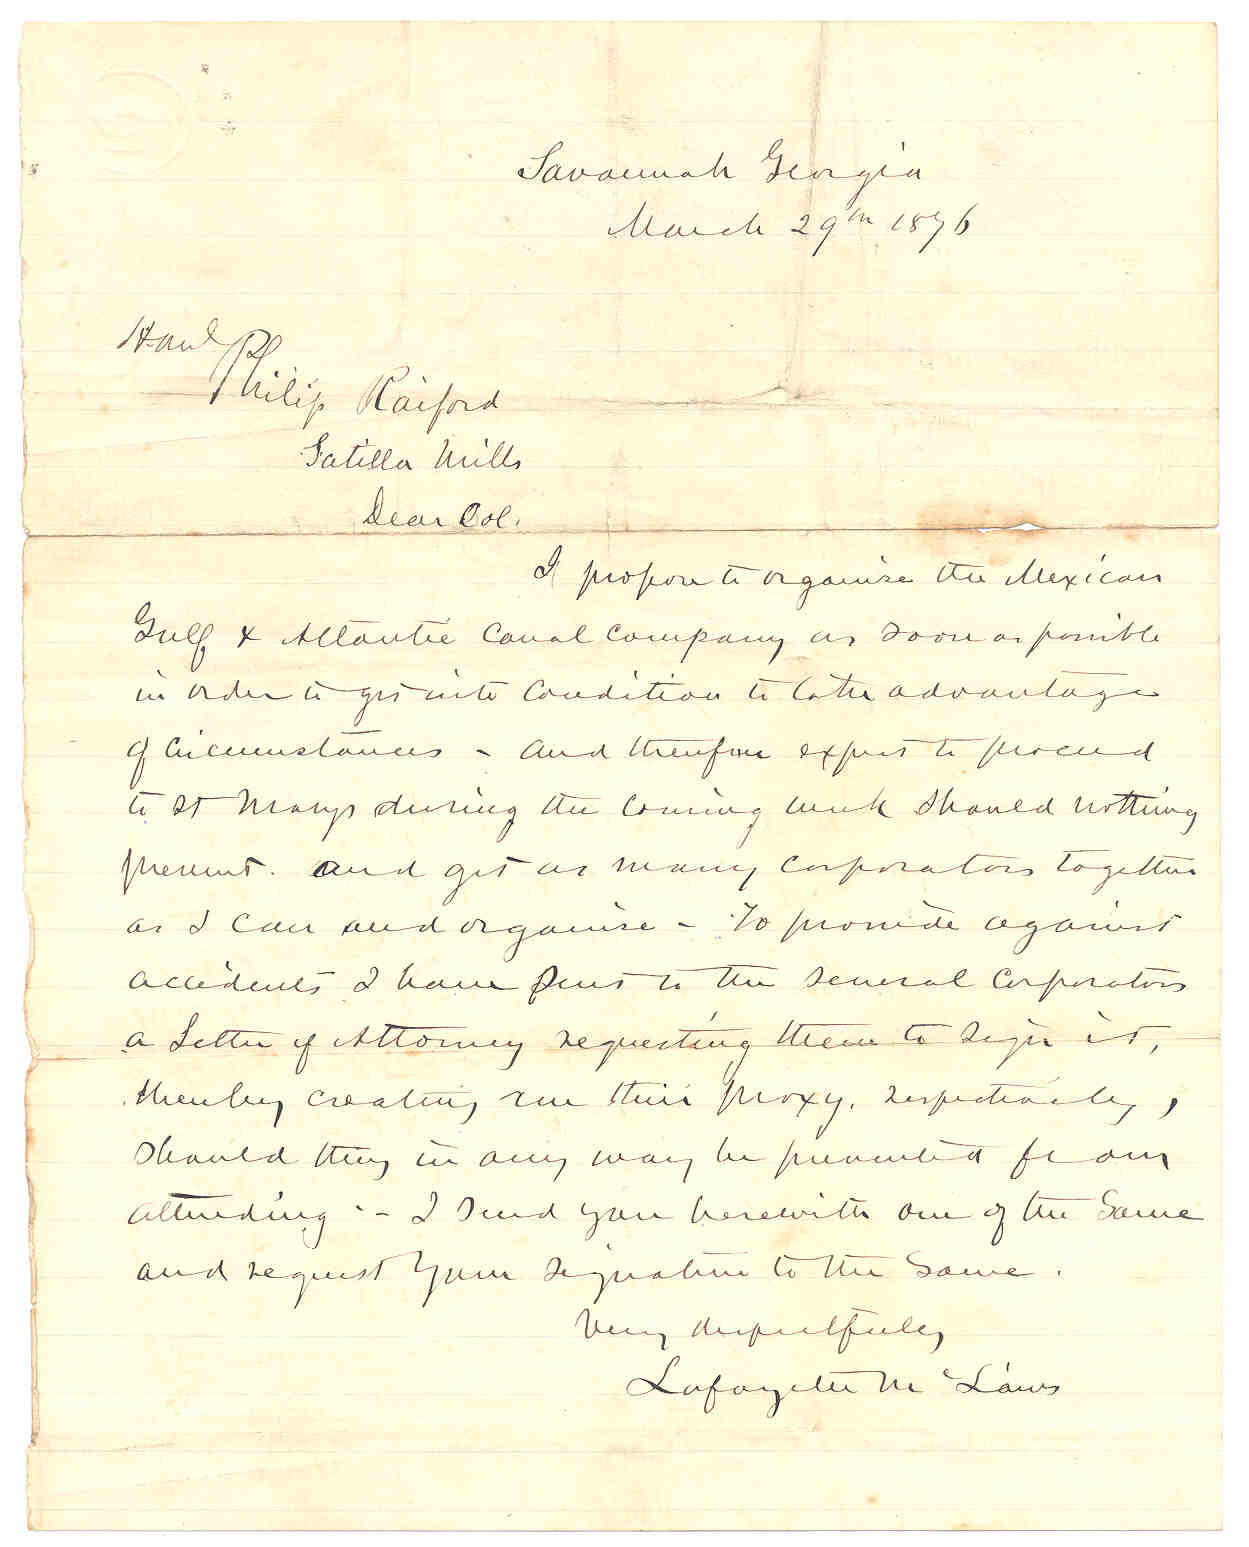 Savannah Georgia
March 29th 1876
Honl
Philip Raiford
Satilla Mills
Dear Col.
I propose to organise the Mexican
Gulf & Atlantic Canal Company as soon as possible
in order to get into Condition to take advantage
of Circumstances - and therefore expect to proceed
to St Marys during the Coming week should nothing
prevent. and get as many Corporators together
as I can and organise - To provide against
accidents I have sent to the several Corporators
a Letter of Attorney requesting them to sign it,
thereby creating me their proxy, respectively,
should they in any way be prevented from
attending - I send you herewith one of the Same
and request your signature to the Same.
Very respectfully
Lafayette McLaws